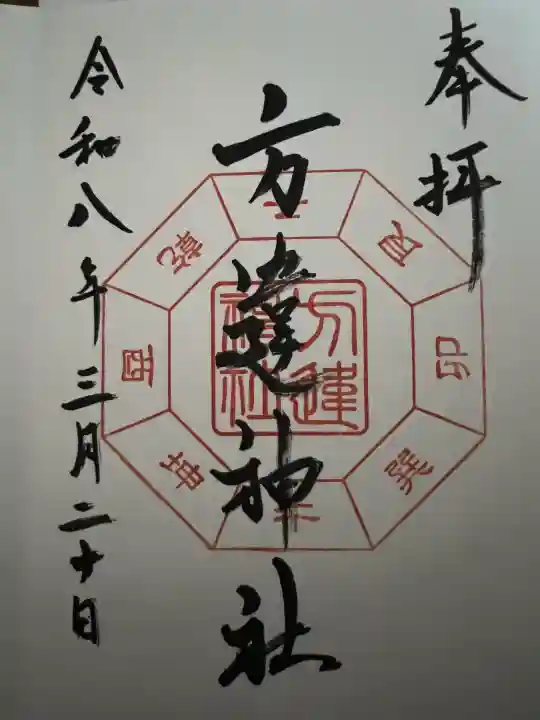 奉拝
方違神社
令和八年三月二十日
方違
神社
艮
卯
巽
坤
酉
乾